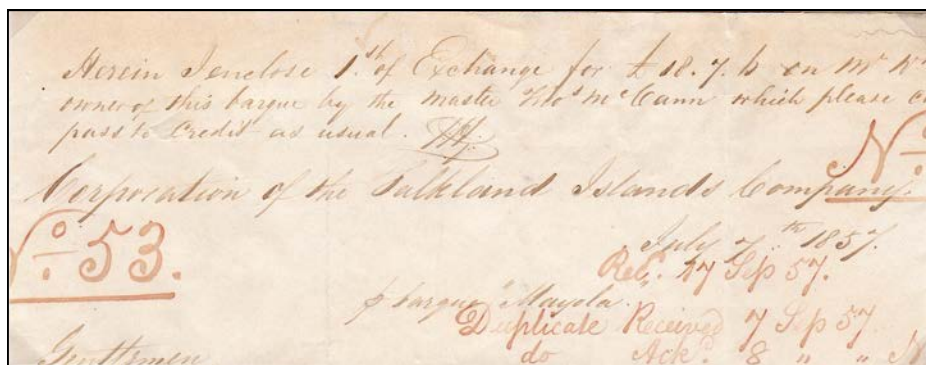 Herein I enclose 1.st of Exchange for £18.7.6 on Mr
owner of this barque by the master Thos McCann which please
pass to Credit as usual.
No.
Corporation of the Falkland Islands Company.
No. 53.
July 7.th 1857.
Recd. 17 Sep 57.
p barque "Mayola"
Duplicate Received 7 Sep 57
do Ackd. 8 " "
Gentlemen